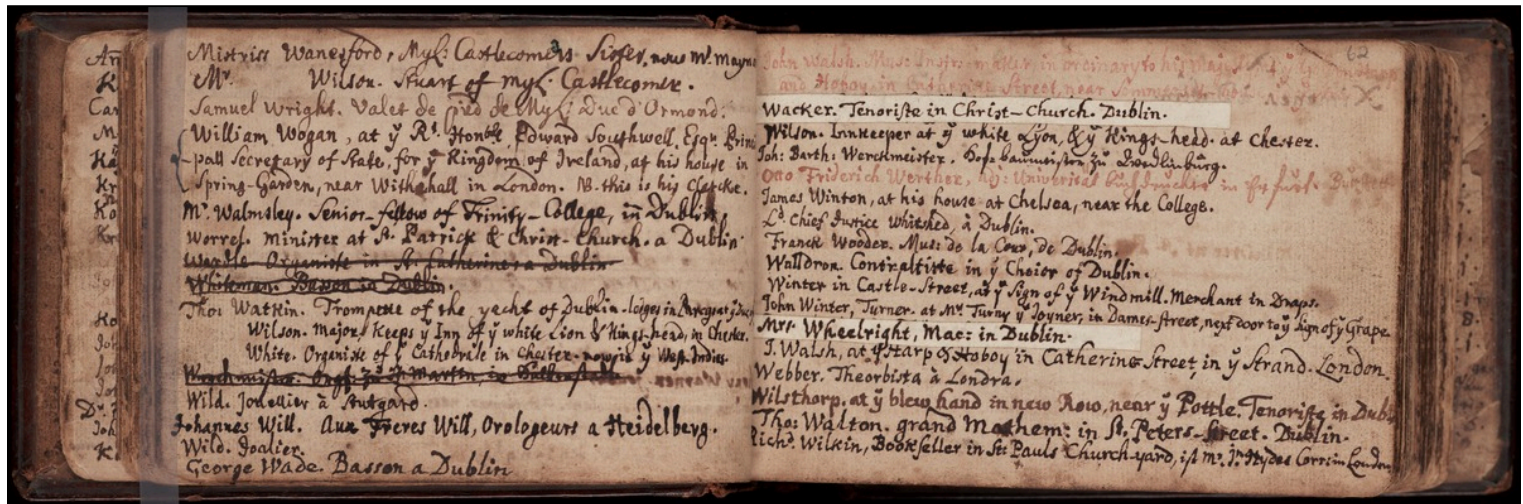 Mistriss Wanesford, Myl: Castlecomers Sister, now Mr. Mayne
Mr. Wilson. Stuart of Myl: Castlecomer.
Samuel Wright. Valet de pied de Myl: Duc d'Ormond.
William Wogan, at ÿ Rt. Honble. Edward Southwell, Esqr. Princi
-pall Secretary of State, for ÿ Kingdom of Ireland, at his house in
Spring-Garden, near Withehall in London. NB. this is his Clarcke.
Mr. Walmsley. Senior-fellow of Trinity-College, in Dublin.
Worrel. Minister at St. Patrick & Christ-Church. a Dublin.
Wardle Organiste in St. Catherine, a Dublin
Whiteman. Basson in Dublin.
Tho: Watkin. Trompette of the yacht of Dublin- loges in
Wilson. Major, Keeps ÿ Inn of ÿ white Lion & Kings-head, in Chester.
White. Organiste of ÿ Cathedrale in Chester. now in ÿ West-Indies.
Martin, in
Wild. Jouellier à Stutgard.
Johannes Will. Aux Freres Will, Orologeurs a Heidelberg.
Wild. Joalier.
George Wade. Basson a Dublin
62
John Walsh. Mus: Instr: maker in orcinary to his Maj:
and Hoboy in Catherine Street, near Sommerset
Wacker. Tenoriste in Christ-Church. Dublin.
Wilson. Innkeeper at ÿ white Lyon, & ÿ Kings-head. at Chester.
Joh: Barth: Werckmeister. Hof-baumeister zu Quedlinburg.
Otto Friderich Werther, Universität buchdrucker in
James Winton, at his house at Chelsea, near the College.
Ld. Chief Justice Whitshed, à Dublin.
Franck Wooder. Mus: de la Cour, de Dublin.
Walldron. Contraltiste in ÿ Choier of Dublin.
Winter in Castle-Street, at ÿ Sign of ÿ Windmill. Merchant in Draps.
John Winter, Turner. at Mr. Turny ÿ Joyner, in Dames-street, next door to ÿ Sign of ÿ Grape
Mrs. Wheelright, Mac: in Dublin.
J. Walsh, at ÿ Harp & Hoboy in Catherine Street, in ÿ Strand. London.
Webber. Theorbista à Londra.
Wilsthorp. at ÿ blew hand in new Row, near ÿ Pottle. Tenoriste in Dubl
Tho: Walton. grand Mathem: in St. Peters-Street. Dublin.
Richd. Wilkin, Bookseller in St: Pauls Church-yard, ist Mr. Jn. Hydes Corr: in London